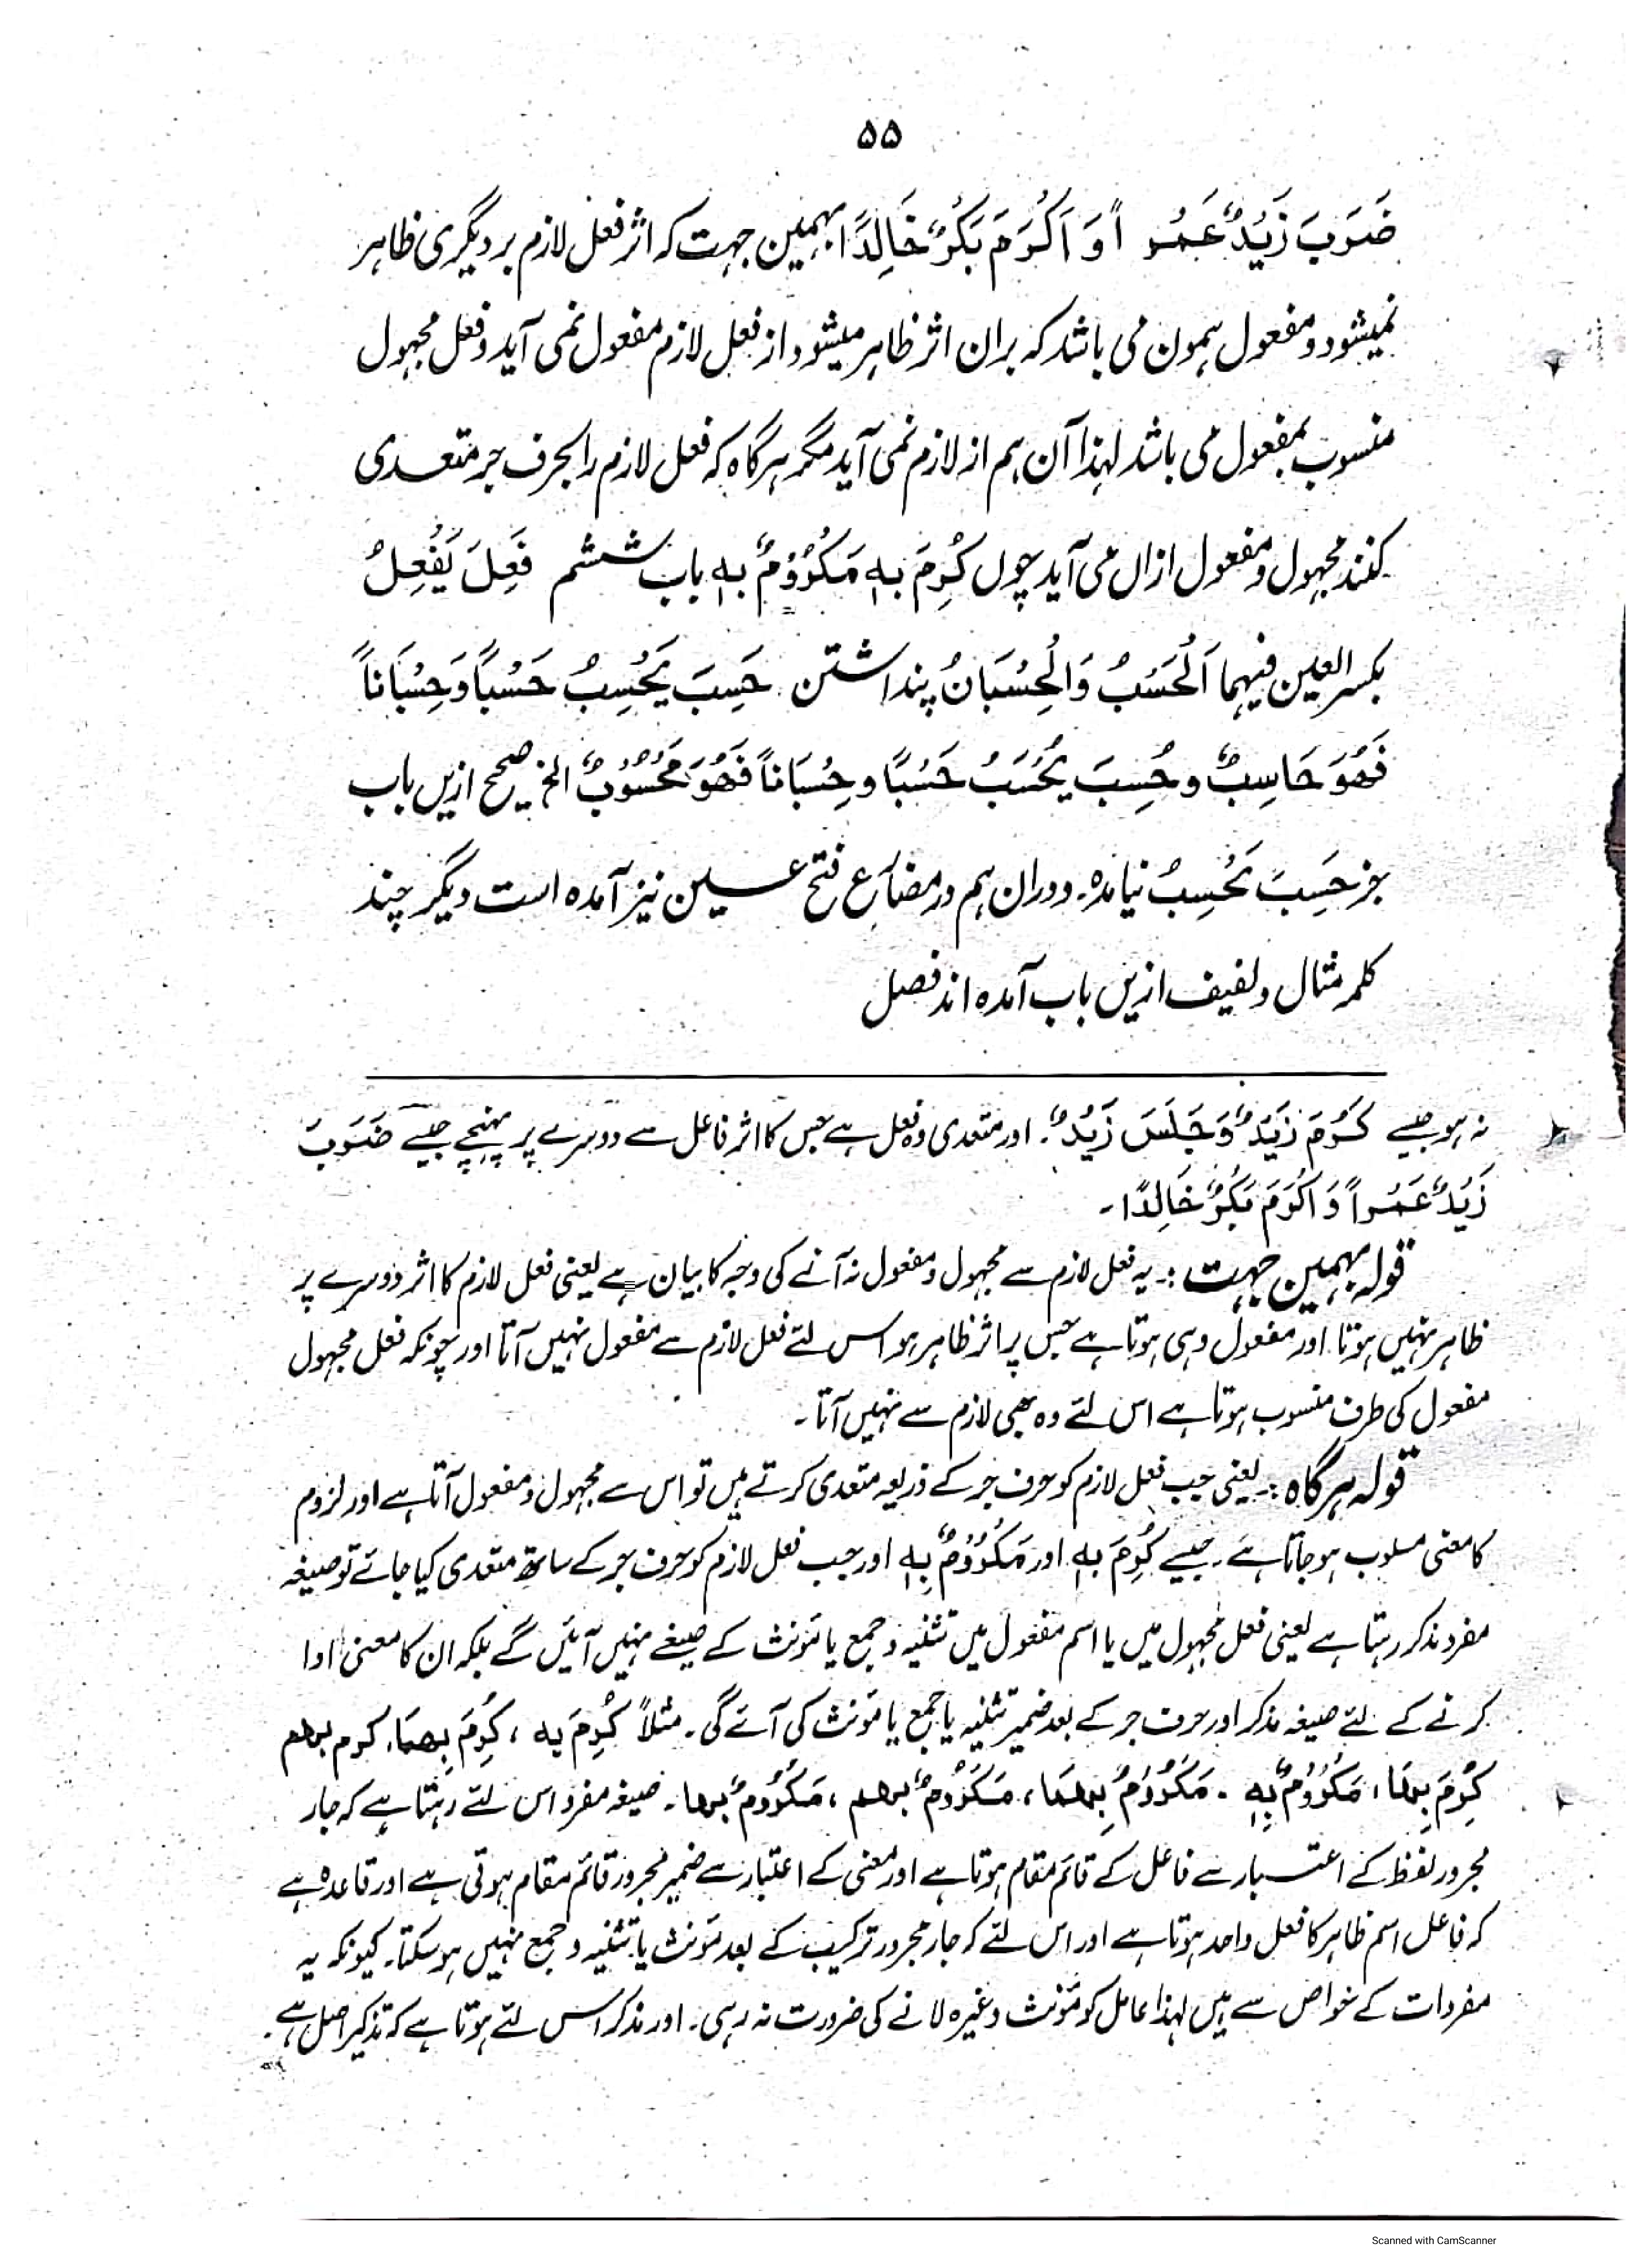 ۵۵
ضَرَبَ زَيْدٌ عَمْرواً وَ اَكْرَمَ بَكْرٌ خَالِدًا بہمین جہت کہ اثر فعل لازم بر دیگری ظاہر
نمیشود و مفعول ہمون می باشد کہ بران اثر ظاہر میشود از فعل لازم مفعول نمی آید و فعل مجہول
منسوب بمفعول می باشد لہذا آن ہم از لازم نمی آید مگر ہرگاہ کہ فعل لازم را بحرف جر متعدی
کنند مجہول و مفعول ازاں می آید چوں كُرِمَ بِهٖ مَكْرُوْمٌ بِهٖ باب ششم فَعِلَ يَفْعِلُ
بکسر العین فیہما اَلْحَسْبُ وَالْحِسْبَانُ پنداشتن حَسِبَ يَحْسِبُ حَسْباً وَحِسْبَاناً
فَهُوَ حَاسِبٌ و حُسِبَ يُحْسَبُ حَسْبًا و حِسْبَاناً فَهُوَ مَحْسُوْبٌ الخ صحیح ازیں باب
جز حَسِبَ يَحْسِبُ نیامدہ۔ ودران ہم در مضارع فتح عین نیز آمدہ است دیگر چند
کلمہ مثال و لفیف ازیں باب آمدہ اند فصل
نہ ہو جیسے كَرُمَ زَيْدٌ وَجَلَسَ زَيْدٌ۔ اور متعدی وہ فعل ہے جس کا اثر فاعل سے دوسرے پر پہنچے جیسے ضَرَبَ
زَيْدٌ عَمْرواً وَ اَكْرَمَ بَكْرٌ خَالِدًا۔
قولہ بہمین جہت :۔ یہ فعل لازم سے مجہول و مفعول نہ آنے کی وجہ کا بیان ہے یعنی فعل لازم کا اثر دوسرے پر
ظاہر نہیں ہوتا اور مفعول وہی ہوتا ہے جس پر اثر ظاہر ہو اس لئے فعل لازم سے مفعول نہیں آتا اور چونکہ فعل مجہول
مفعول کی طرف منسوب ہوتا ہے اس لئے وہ بھی لازم سے نہیں آتا۔
قولہ ہرگاہ :۔ یعنی جب فعل لازم کو حرف جر کے ذریعہ متعدی کرتے ہیں تو اس سے مجہول و مفعول آتا ہے اور لزوم
کا معنی مسلوب ہوجاتا ہے۔ جیسے كُرِمَ بِهٖ اور مَكْرُوْمٌ بِهٖ اور جب فعل لازم کو حرف جر کے ساتھ متعدی کیا جائے تو صیغہ
مفرد مذکر رہتا ہے یعنی فعل مجہول میں یا اسم مفعول میں تثنیہ و جمع یا مؤنث کے صیغے نہیں آئیں گے بلکہ ان کا معنی ادا
کرنے کے لئے صیغہ مذکر اور حرف جر کے بعد ضمیر تثنیہ یا جمع یا مؤنث کی آئے گی۔ مثلاً كُرِمَ بِه ، كُرِمَ بِهِمَا، كرم بهم
كُرِمَ بِهَا، مَكْرُوْمٌ بِهٖ ۔ مَكْرُوْمٌ بِهِمَا، مَكْرُوْمٌ بهم ، مَكْرُوْمٌ بها۔ صیغہ مفرد اس لئے رہتا ہے کہ جار
مجرور لفظ کے اعتبار سے فاعل کے قائم مقام ہوتا ہے اور معنی کے اعتبار سے ضمیر مجرور قائم مقام ہوتی ہے اور قاعدہ ہے
کہ فاعل اسم ظاہر کا فعل واحد ہوتا ہے اور اس لئے کہ جار مجرور ترکیب کے بعد مؤنث یا تثنیہ و جمع نہیں ہوسکتا۔ کیونکہ یہ
مفردات کے خواص سے ہیں لہذا عامل کو مؤنث وغیرہ لانے کی ضرورت نہ رہی۔ اور مذکر اس لئے ہوتا ہے کہ تذکیر اصل ہے۔
Scanned with CamScanner